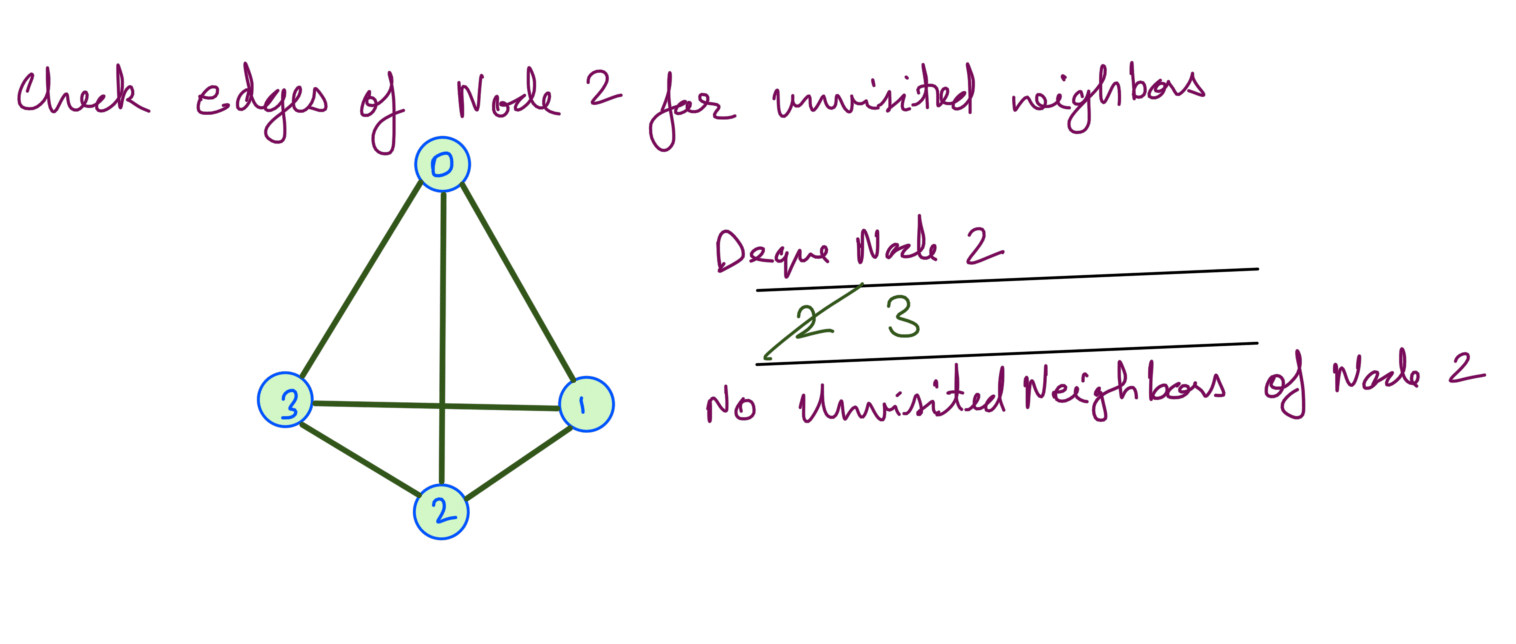 Check edges of Node 2 for unvisited neighbors
0
Deque Node 2
2 3
3
1
No Unvisited Neighbors of Node 2
2